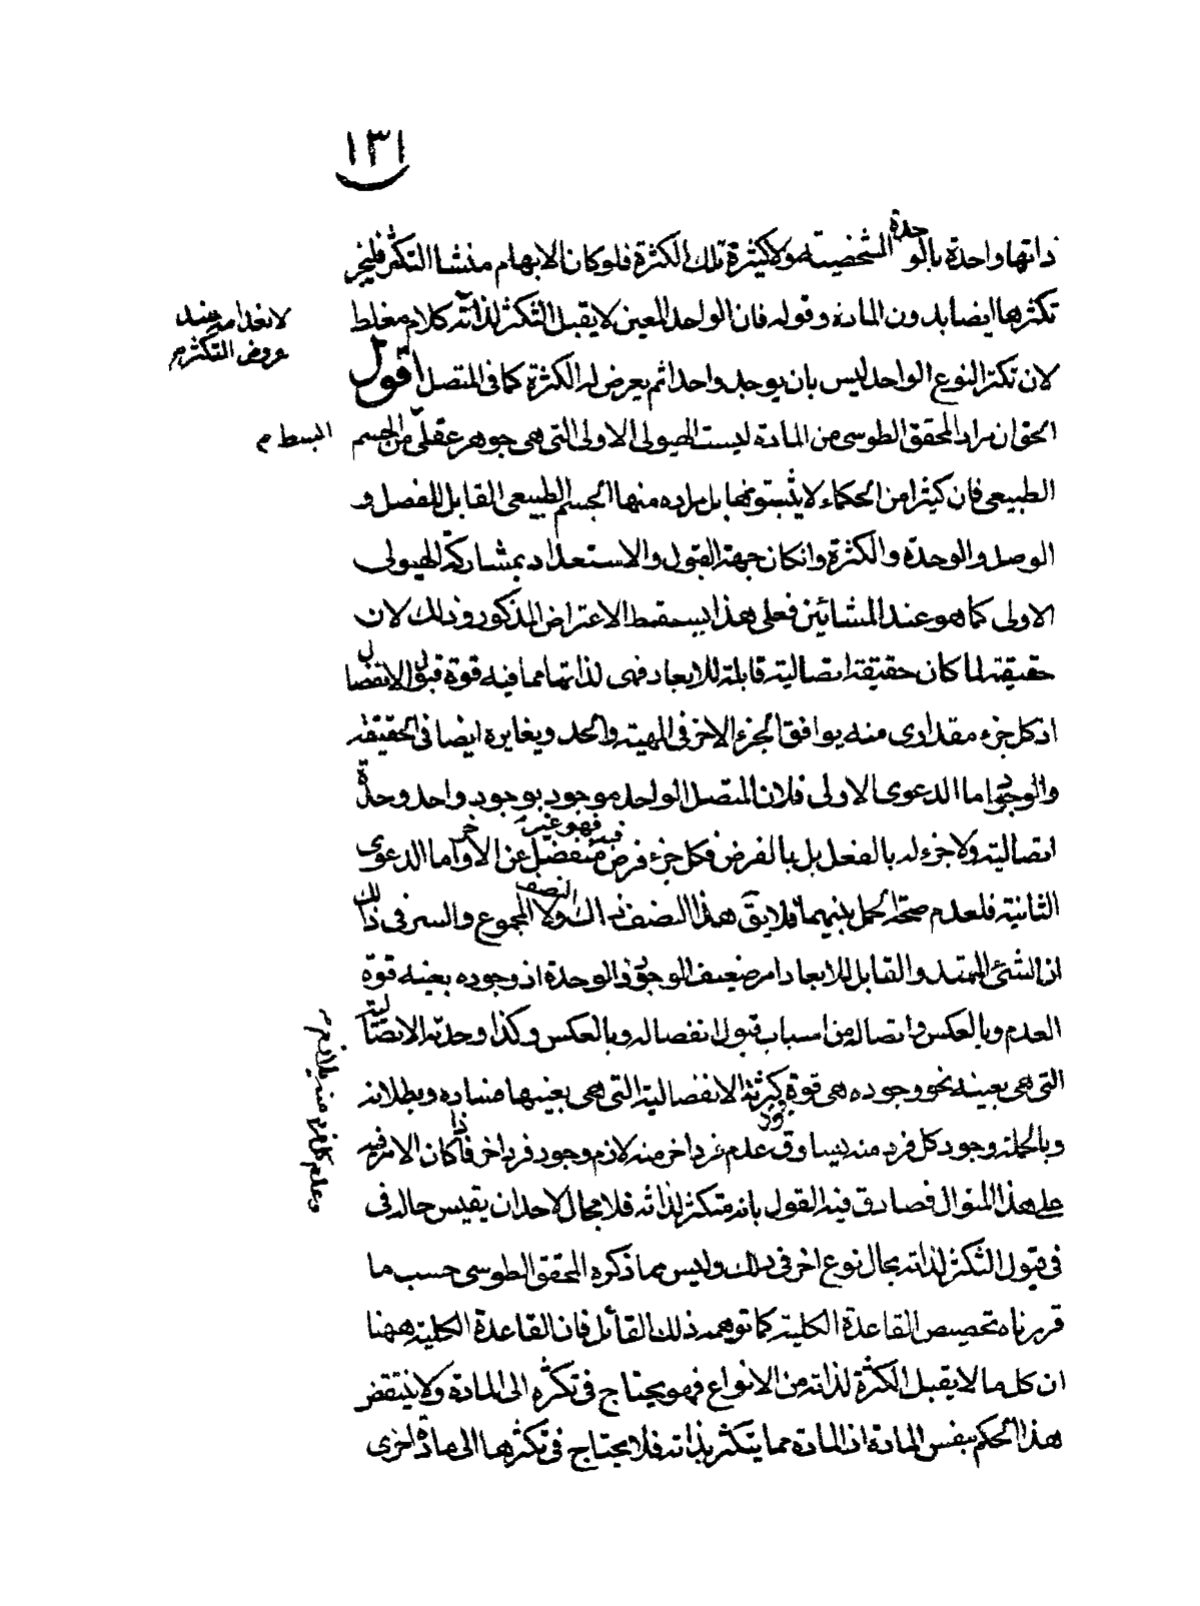 ١٣١
ذاتها واحدة بالوحدة الشخصية هيولا كثيرة تلك الكثرة فلو كان الابهام منشا التكثر فليجز
تكثرها ايضا بدون المادة وقوله فان الواحد المعين لا يقبل التكثر لذاته كلام مغلط
لانعدامه عند
عروض التكثر م
لان تكثر النوع الواحد ليس بان يوجد واحدا ثم يعرض له الكثرة كما فى المتصل اقول
الحق ان مراد المحقق الطوسى من المادة ليست الهيولى الاولى التى هى جوهر عقلى من الجسم
البسيط م
الطبيعى فان كثيرا من الحكماء لا يثبتونها بل مراده منها الجسم الطبيعى القابل للفصل و
الوصل والوحدة والكثرة وانكان جهة القبول والاستعداد بمشاركة الهيولى
الاولى كما هو عند المشائين فعلى هذا يسقط الاعتراض المذكور وذلك لان
حقيقته لما كان حقيقة اتصالية قابلة للابعاد فهى لذاتها مما فيه قوة قبول الانفصال
اذ كل جزء مقدارى منه يوافق الجزء الاخر فى المهية والحد ويغايره ايضا فى الحقيقة
والوجود اما الدعوى الاولى فلان المتصل الواحد موجود بوجود واحد وحدة
اتصالية ولا جزء له بالفعل بل بالفرض فكل جزء فرض فيه فهو غير منفصل عن الاخر واما الدعوى
الثانية فلعدم صحة الحمل بينهما فلا يق هذا النصف ذاك النصف ولا المجموع والسر فى ذلك
ان الشئ الممتد والقابل للابعاد امر ضعيف الوجود والوحدة اذ وجوده بعينه قوة
العدم وبالعكس واتصاله من اسباب قبول انفصاله وبالعكس وكذا وحدته الاتصالية
التى هى بعينه نحو وجوده هى قوة كثرته الانفصالية التى هى بعينها فساده وبطلانه
وبالجملة وجود كل فرد منه يساوق عدم فرد اخر منه لازم وجود فرد اخر فاذا كان الامر فيه
وعدم كل فرد منه يلازم
على هذا المنوال فصادق فيه القول بانه متكثر لذاته فلا مجال لاحد ان يقيس حاله فى
فى قبول التكثر لذاته بحال نوع اخر فى ذلك وليس مما ذكره المحقق الطوسى حسب ما
قررناه تخصيص القاعدة الكلية كما توهمه ذلك القائل فان القاعدة الكلية ههنا
ان كل ما لا يقبل الكثرة لذاته من الانواع فهو يحتاج فى تكثره الى المادة ولا ينتقض
هذا الحكم بنفس المادة اذ المادة مما يتكثر بذاته فلا يحتاج فى تكثرها الى مادة اخرى